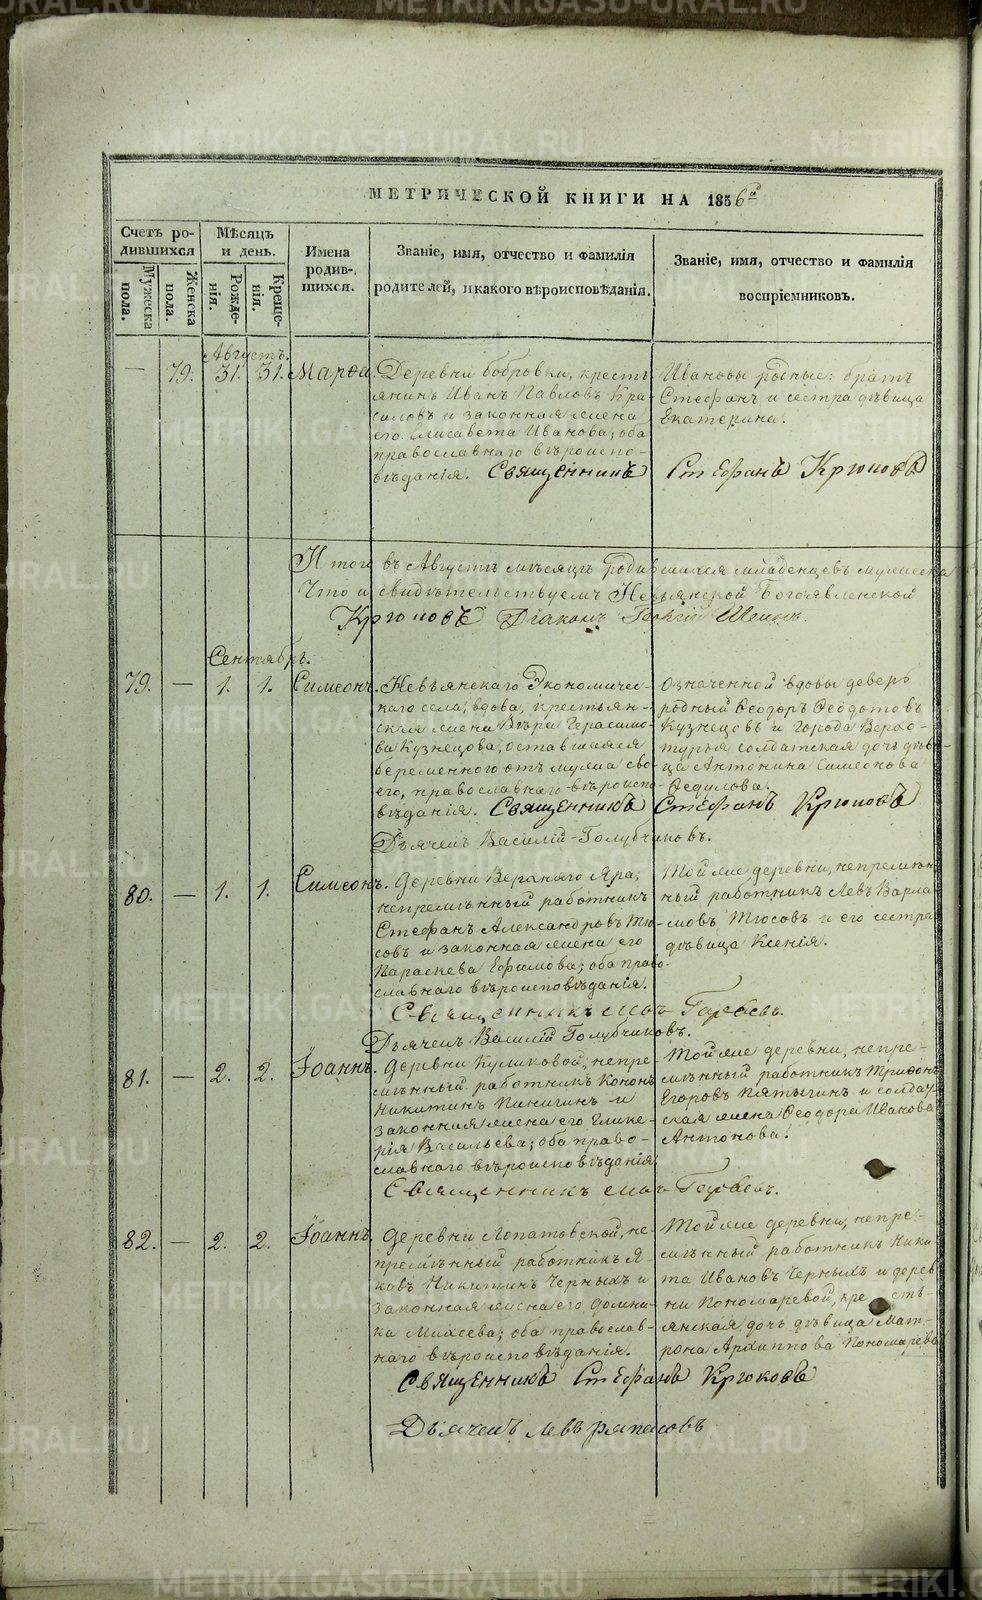 МЕТРИЧЕСКОЙ КНИГИ НА 1856й
Счетъ ро-
дившихся
Мѣсяцъ
и день.
Имена
родив-
шихся.
Званіе, имя, отчество и фамилія
родителей, и какого вѣроисповѣданія.
Званіе, имя, отчество и фамилія
воспріемниковъ.
Мужеска
пола.
Женска
пола.
Рожде-
нія.
Креще-
нія.
Августъ.
— 79. 31. 31. Марѳа.
Деревни Бобровки, кресть-
янинъ Иванъ Павловъ Кра-
силовъ и законная жена
его Елисавета Иванова; оба
православнаго вѣроиспо-
вѣданія. Священникъ
Ивановы родные: братъ
Стефанъ и сестра дѣвица
Екатерина.
Стефанъ Крюковъ
Итого въ Августѣ мѣсяцѣ родившихся младенцевъ мужеска
Что и свидѣтельствуемъ Невьянской Богоявленской
Крюковъ Діаконъ Георгій
Сентябрь.
79. — 1. 1. Симеонъ.
Невьянскаго Экономичес-
каго села, вдова, крестьян-
ская жена Вѣра Герасимо-
ва Кузнецова, оставшаяся
беременного отъ мужа сво-
его, православнаго вѣроиспо-
вѣданія. Священникъ
Означенной вдовы деверь
родный Ѳеодоръ Ѳеодотовъ
Кузнецовъ и города Верхо-
турья солдатская дочь дѣви-
ца Антонина Симеонова
Ѳедулова.
Стефанъ Крюковъ
Дьячекъ Василій Голубчиковъ.
80. — 1. 1. Симеонъ.
Деревни Верхняго Яра,
непремѣнный работникъ
Стефанъ Александровъ Тю-
совъ и законная жена его
Параскева Ефимова; оба право-
славнаго вѣроисповѣданія.
Тойже деревни, непремѣн-
ный работникъ Левъ Варла-
мовъ Тюсовъ и его сестра
дѣвица Ксенія.
Священникъ
Дьячекъ Василій Голубчиковъ.
81. — 2. 2. Іоаннъ.
Деревни Куликовой, непре-
мѣнный работникъ Кононъ
Никитинъ Пинигинъ и
законная жена его Глике-
рія Васильева; оба право-
славнаго вѣроисповѣданія.
Тойже деревни, непре-
мѣнный работникъ Трифонъ
Егоровъ Пятыгинъ и солдат-
ская жена Ѳеодора Иванова
Антонова.
Священникъ
82. — 2. 2. Іоаннъ.
Деревни Лопатовской, не-
премѣнный работникъ Я-
ковъ Никитинъ Черныхъ и
законная жена его Домни-
ка Михеева; оба православ-
наго вѣроисповѣданія.
Тойже деревни, непре-
мѣнный работникъ Ники-
та Ивановъ Черныхъ и дерев-
ни Пономаревой, кресть-
янская дочь дѣвица Мат-
рона Архиппова Пономарева
Священникъ Стефанъ Крюковъ
Дьячекъ Левъ
METRIKI.GASO-URAL.RU